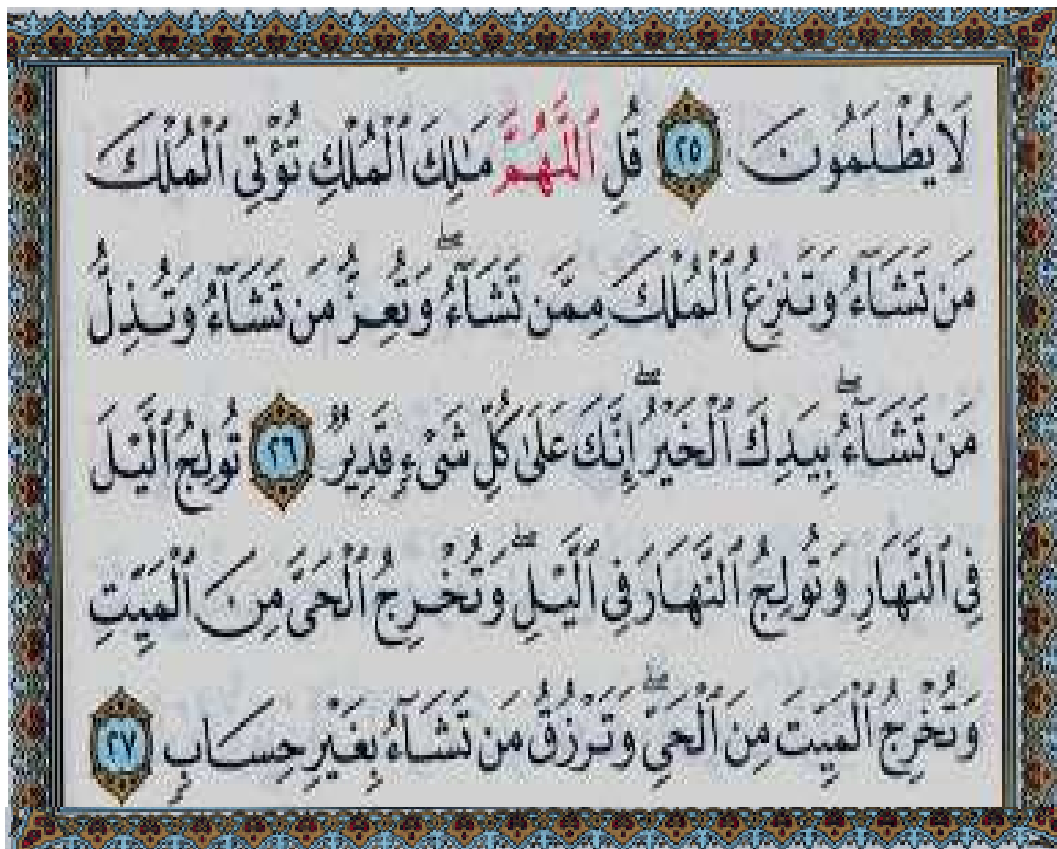 لَا يُظْلَمُونَ ٢٥ قُلِ ٱللَّهُمَّ مَـٰلِكَ ٱلْمُلْكِ تُؤْتِى ٱلْمُلْكَ
مَن تَشَآءُ وَتَنزِعُ ٱلْمُلْكَ مِمَّن تَشَآءُ ۖ وَتُعِزُّ مَن تَشَآءُ وَتُذِلُّ
مَن تَشَآءُ ۖ بِيَدِكَ ٱلْخَيْرُ ۖ إِنَّكَ عَلَىٰ كُلِّ شَىْءٍ قَدِيرٌ ٢٦ تُولِجُ ٱلَّيْلَ
فِى ٱلنَّهَارِ وَتُولِجُ ٱلنَّهَارَ فِى ٱلَّيْلِ ۖ وَتُخْرِجُ ٱلْحَىَّ مِنَ ٱلْمَيِّتِ
وَتُخْرِجُ ٱلْمَيِّتَ مِنَ ٱلْحَىِّ ۖ وَتَرْزُقُ مَن تَشَآءُ بِغَيْرِ حِسَابٍ ٢٧